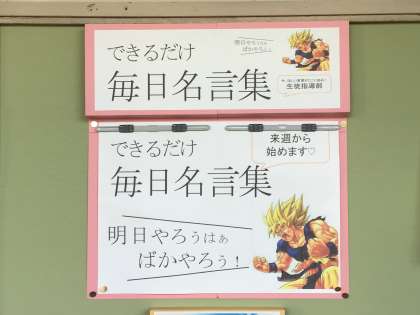 できるだけ
毎日名言集
明日やろうはぁ
ばかやろぅ！
生徒指導部
できるだけ
毎日名言集
来週から
始めます♡
明日やろぅはぁ
ばかやろぅ！